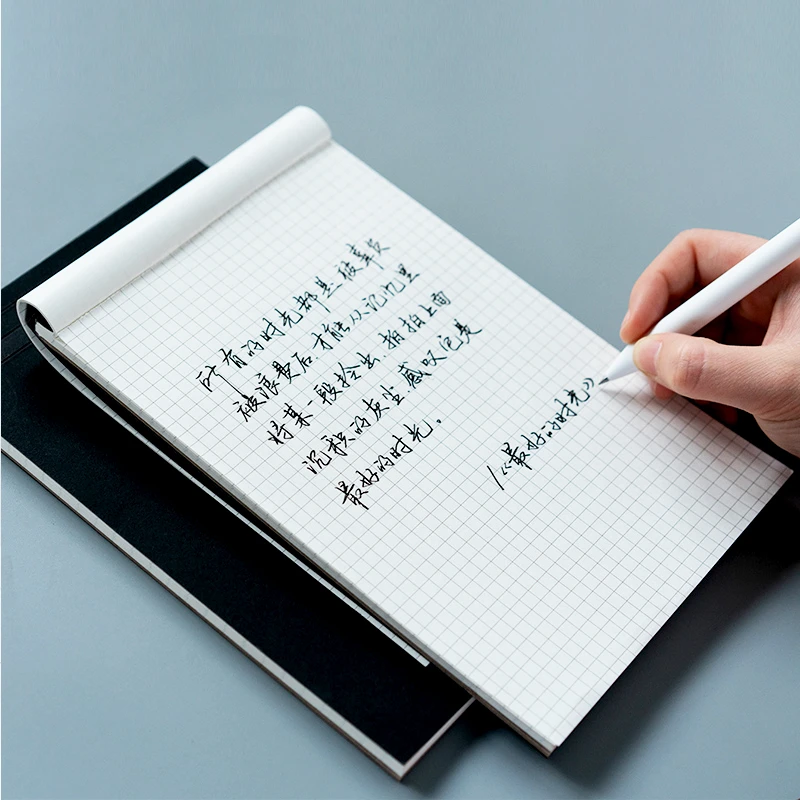 所有的时光都是被辜负
被浪费后才能从记忆里
将某一段拾出，拍拍上面
沉积的灰尘，感叹它是
最好的时光。
/《最好的时光》